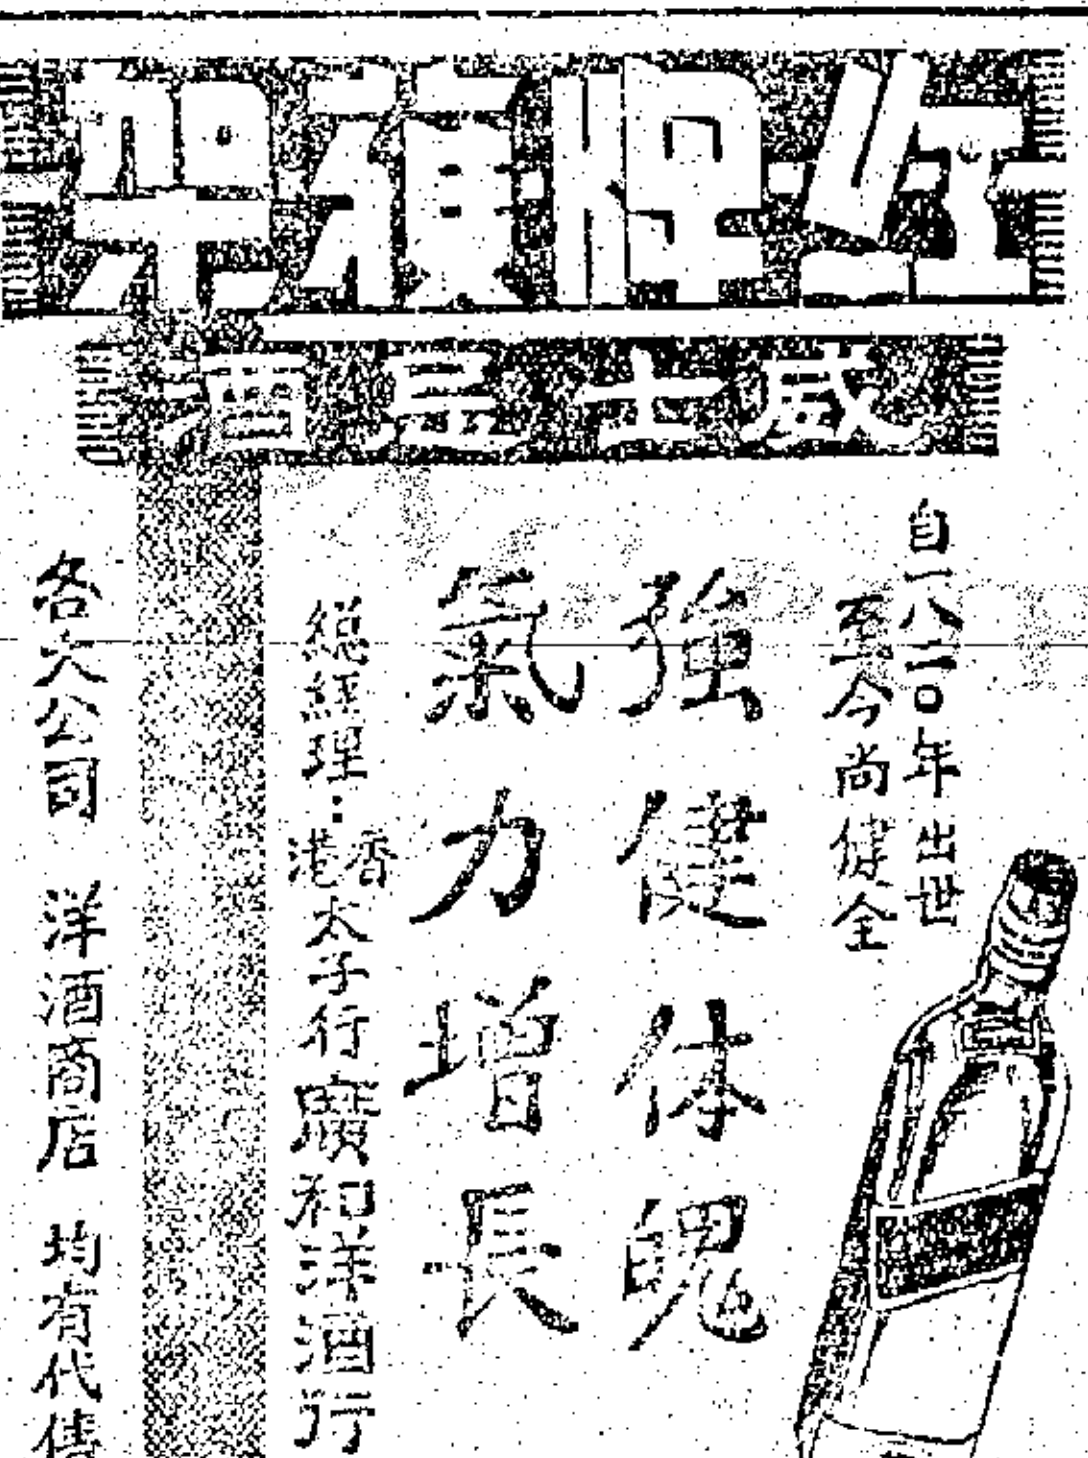 紅牌積架
威士忌酒
自一八二〇年出世
至今尚健全
強健体魄
氣力增長
總經理：香港太子行廣和洋酒行
各大公司 洋酒商店 均有代售